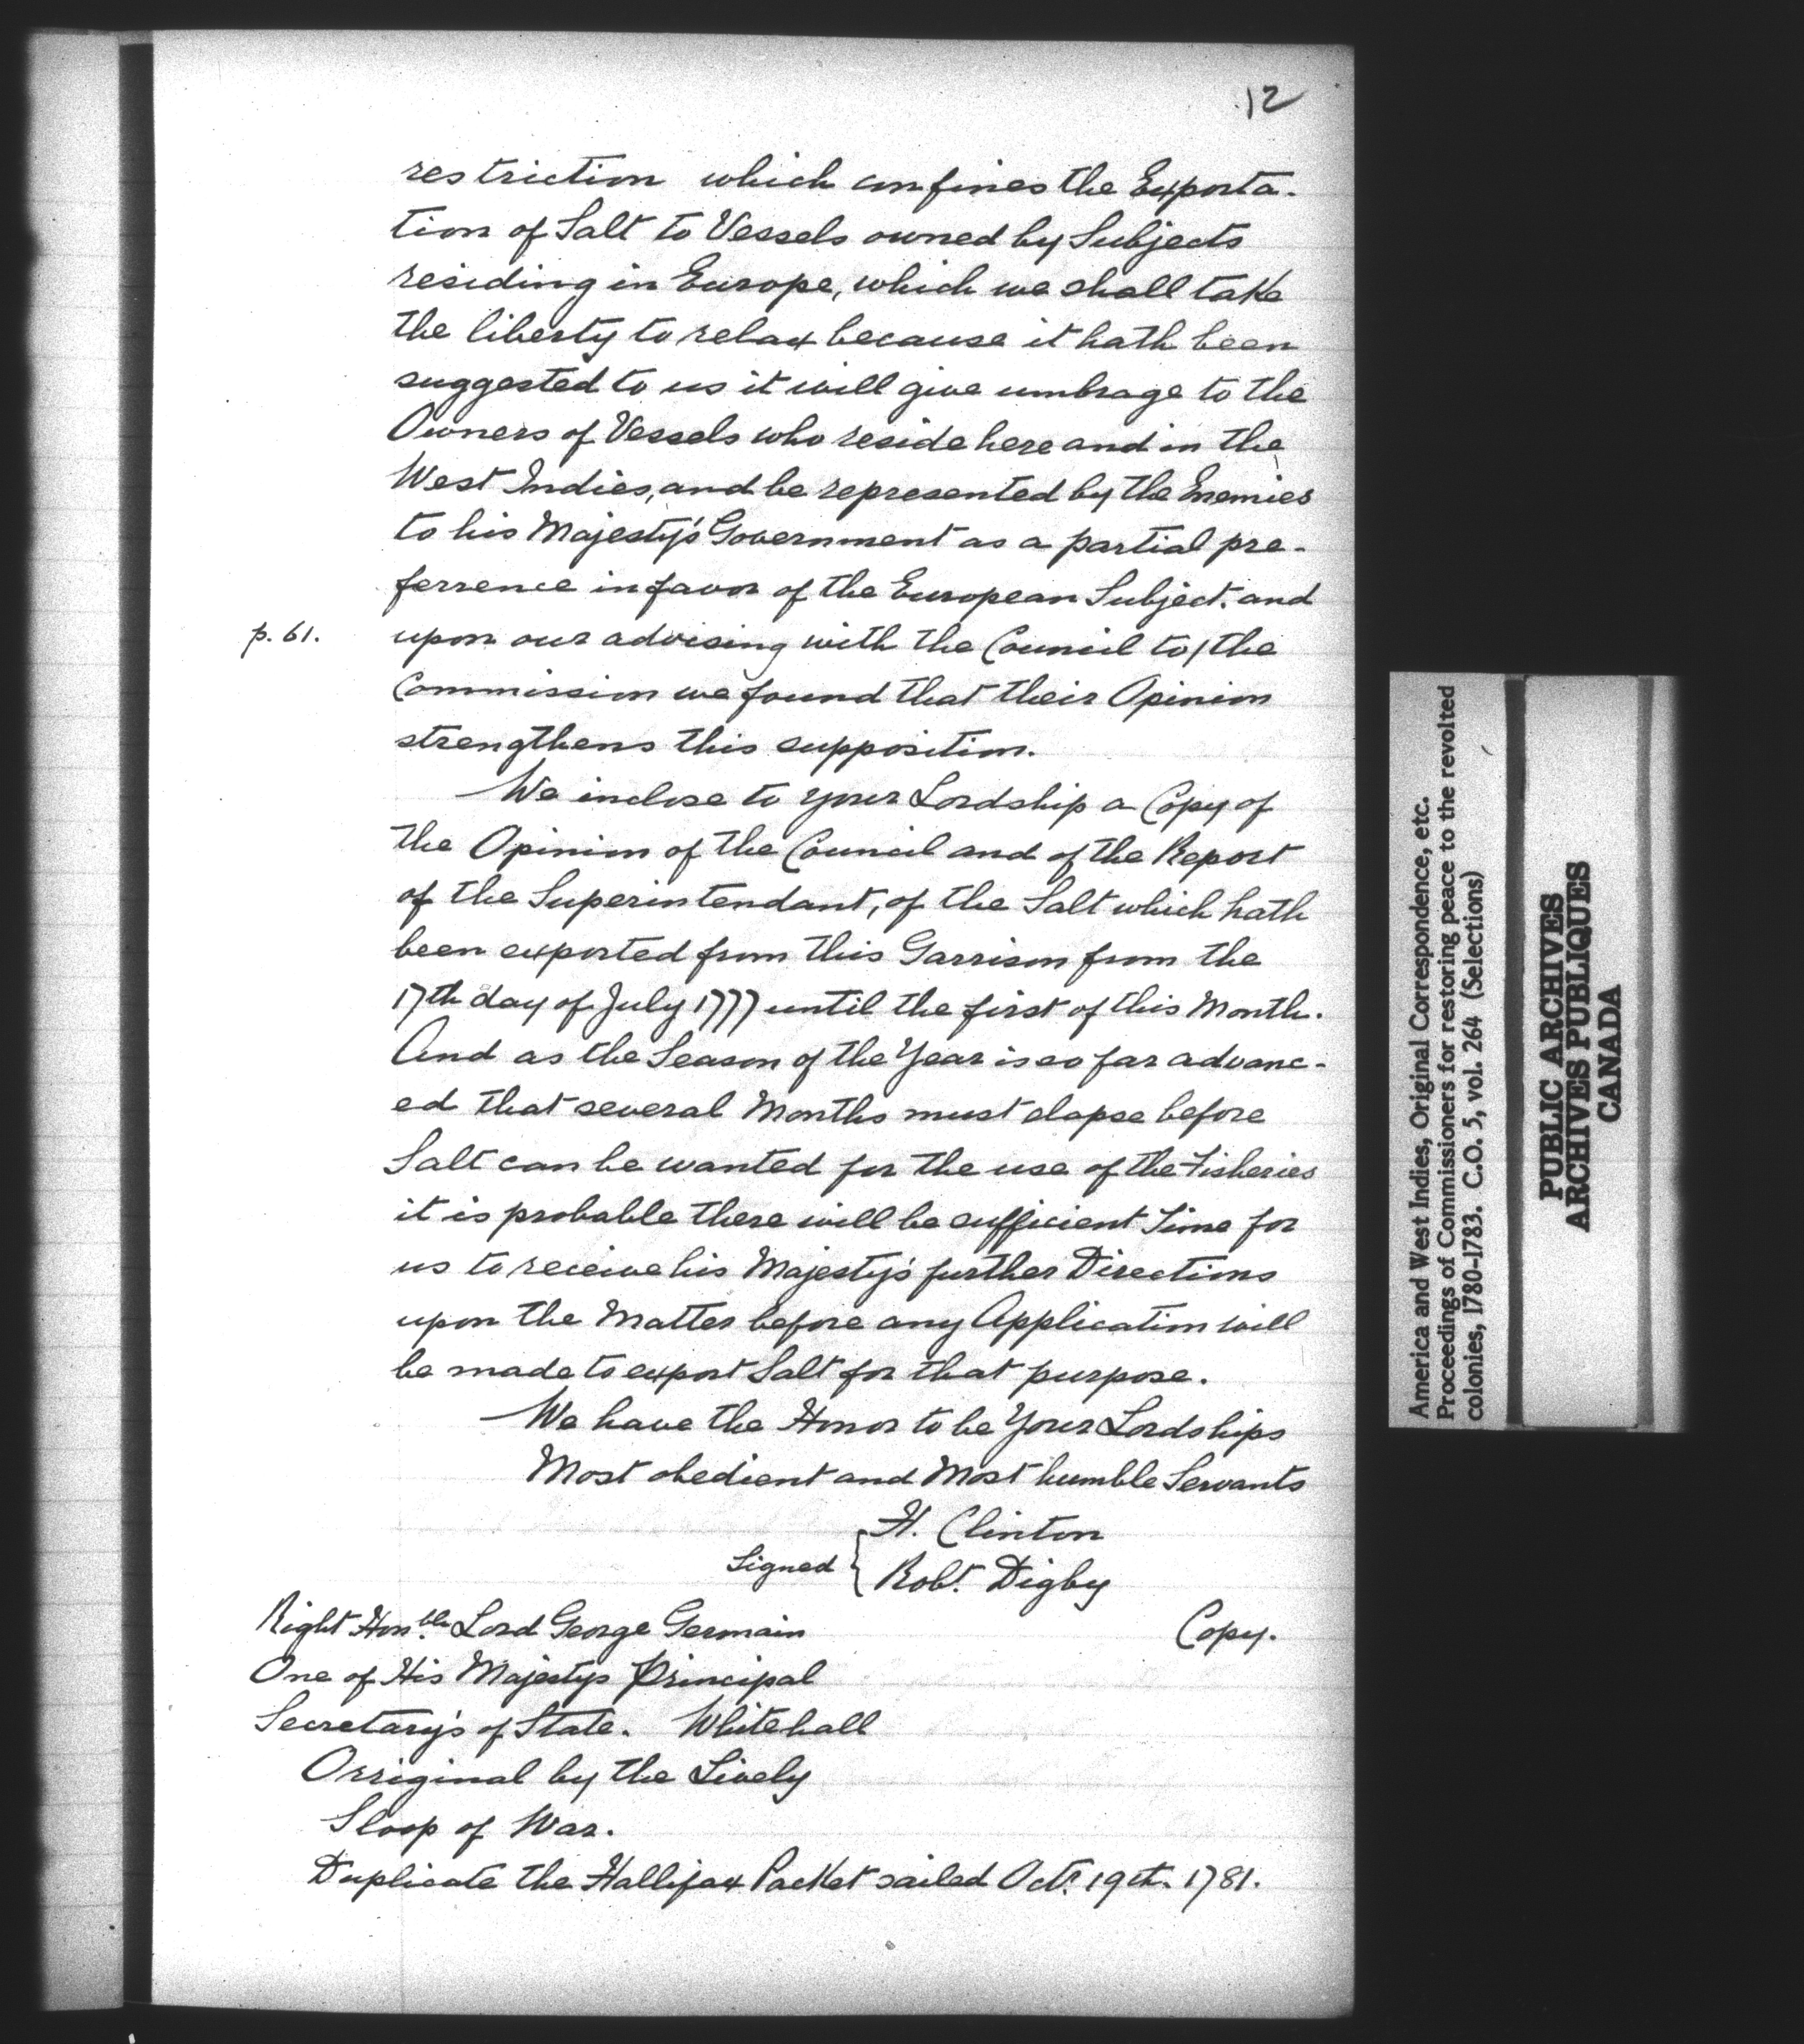 12
restriction which confines the Exporta-
tion of Salt to Vessels owned by Subjects
residing in Europe, which we shall take
the liberty to relax because it hath been
suggested to us it will give umbrage to the
Owners of Vessels who reside here and in the
West Indies, and be represented by the Enemies
to his Majesty's Government as a partial pre-
ferrence in favor of the European Subject. and
p. 61. upon our advising with the Council to / the
Commission we found that their Opinion
strengthens this supposition.
We inclose to your Lordship a Copy of
the Opinion of the Council and of the Report
of the Superintendant, of the Salt which hath
been exported from this Garrison from the
17th day of July 1777 until the first of this Month.
And as the Season of the Year is so far advanc-
ed that several Months must elapse before
Salt can be wanted for the use of the Fisheries
it is probable there will be sufficient Time for
us to receive his Majesty's further Directions
upon the Matter before any Application will
be made to export Salt for that purpose.
We have the Honor to be Your Lordships
Most obedient and Most humble Servants
Signed { H. Clinton
Robt. Digby
Right Honble. Lord George Germain Copy.
One of His Majestys Principal
Secretary's of State. Whitehall
Orriginal by the Lively
Sloop of War.
Duplicate the Hallifax Packet sailed Oct. 19th. 1781.
America and West Indies, Original Correspondence, etc.
Proceedings of Commissioners for restoring peace to the revolted
colonies, 1780-1783. C.O. 5, vol. 264 (Selections)
PUBLIC ARCHIVES
ARCHIVES PUBLIQUES
CANADA